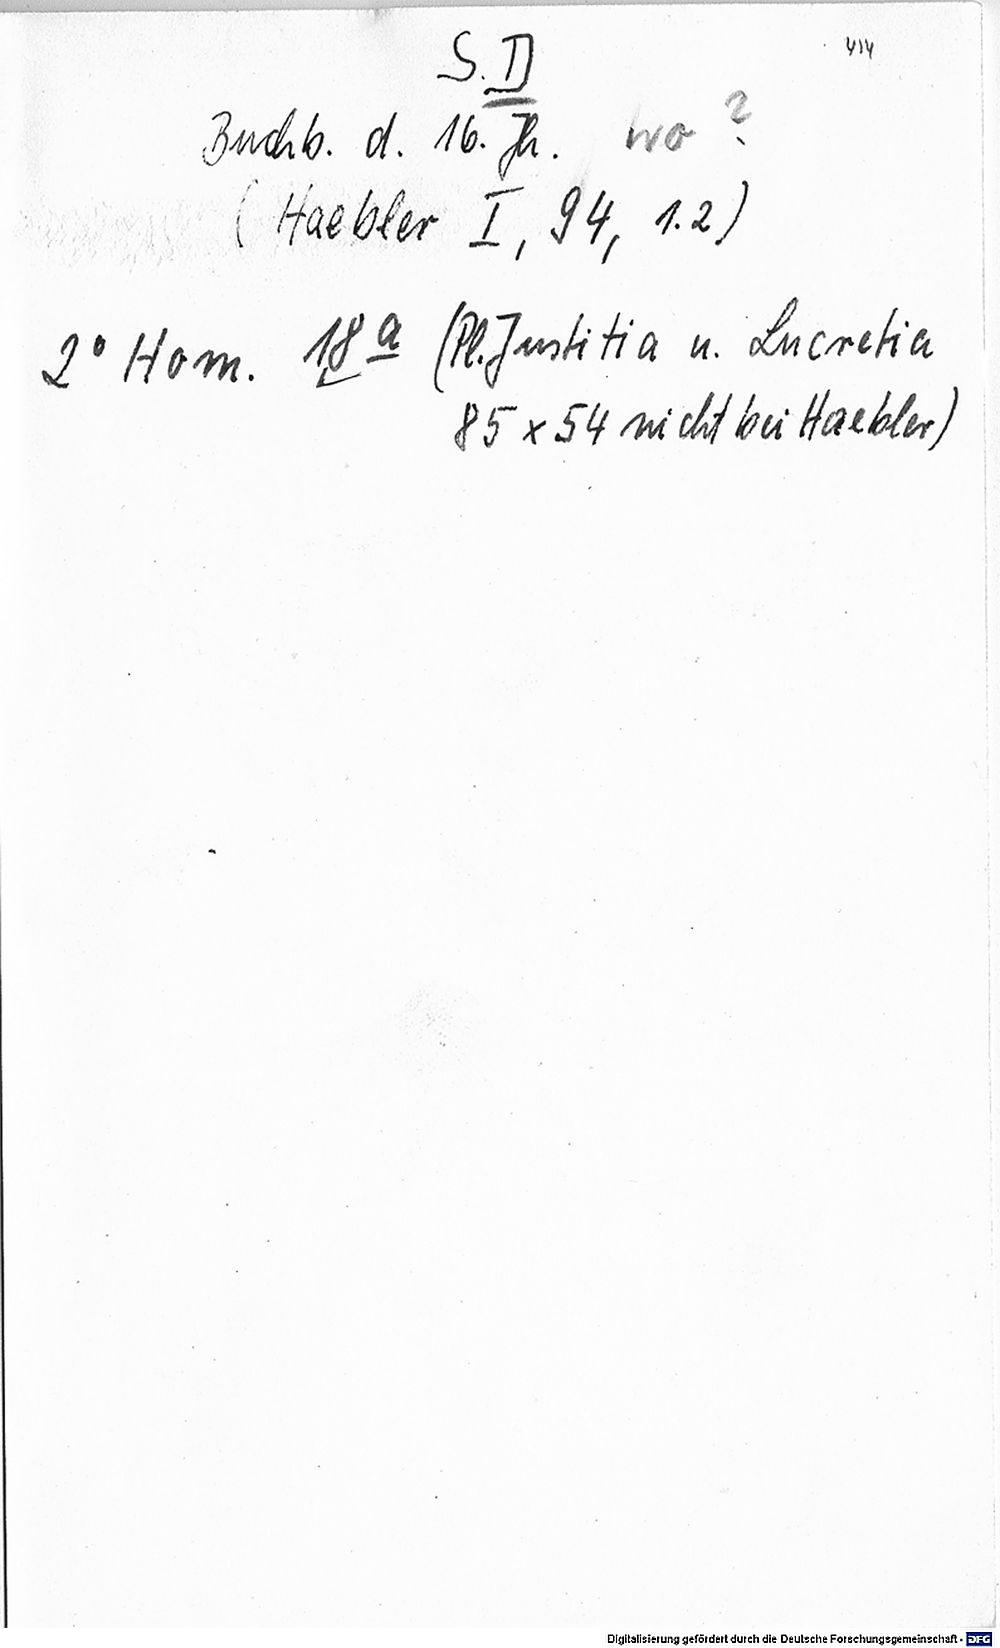 414
S. D
Buchb. d. 16. Jh. wo ?
(Haebler I, 94, 1.2)
2° Hom. 18 a (Pl. Justitia u. Lucretia
85 x 54 nicht bei Haebler)
Digitalisierung gefördert durch die Deutsche Forschungsgemeinschaft - DFG